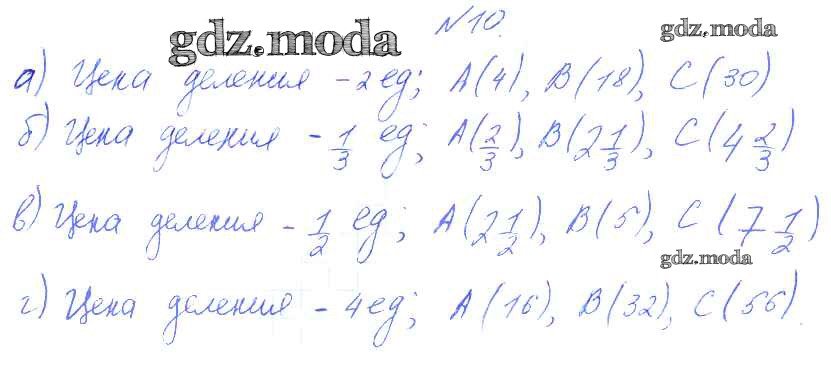 №10.
gdz.moda
gdz.moda
а) Цена деления - 2 ед; A(4), B(18), C(30)
б) Цена деления - 1/3 ед; A(2/3), B(2 1/3), C(4 2/3)
в) Цена деления - 1/2 ед; A(2 1/2), B(5), C(7 1/2)
gdz.moda
г) Цена деления - 4 ед; A(16), B(32), C(56).